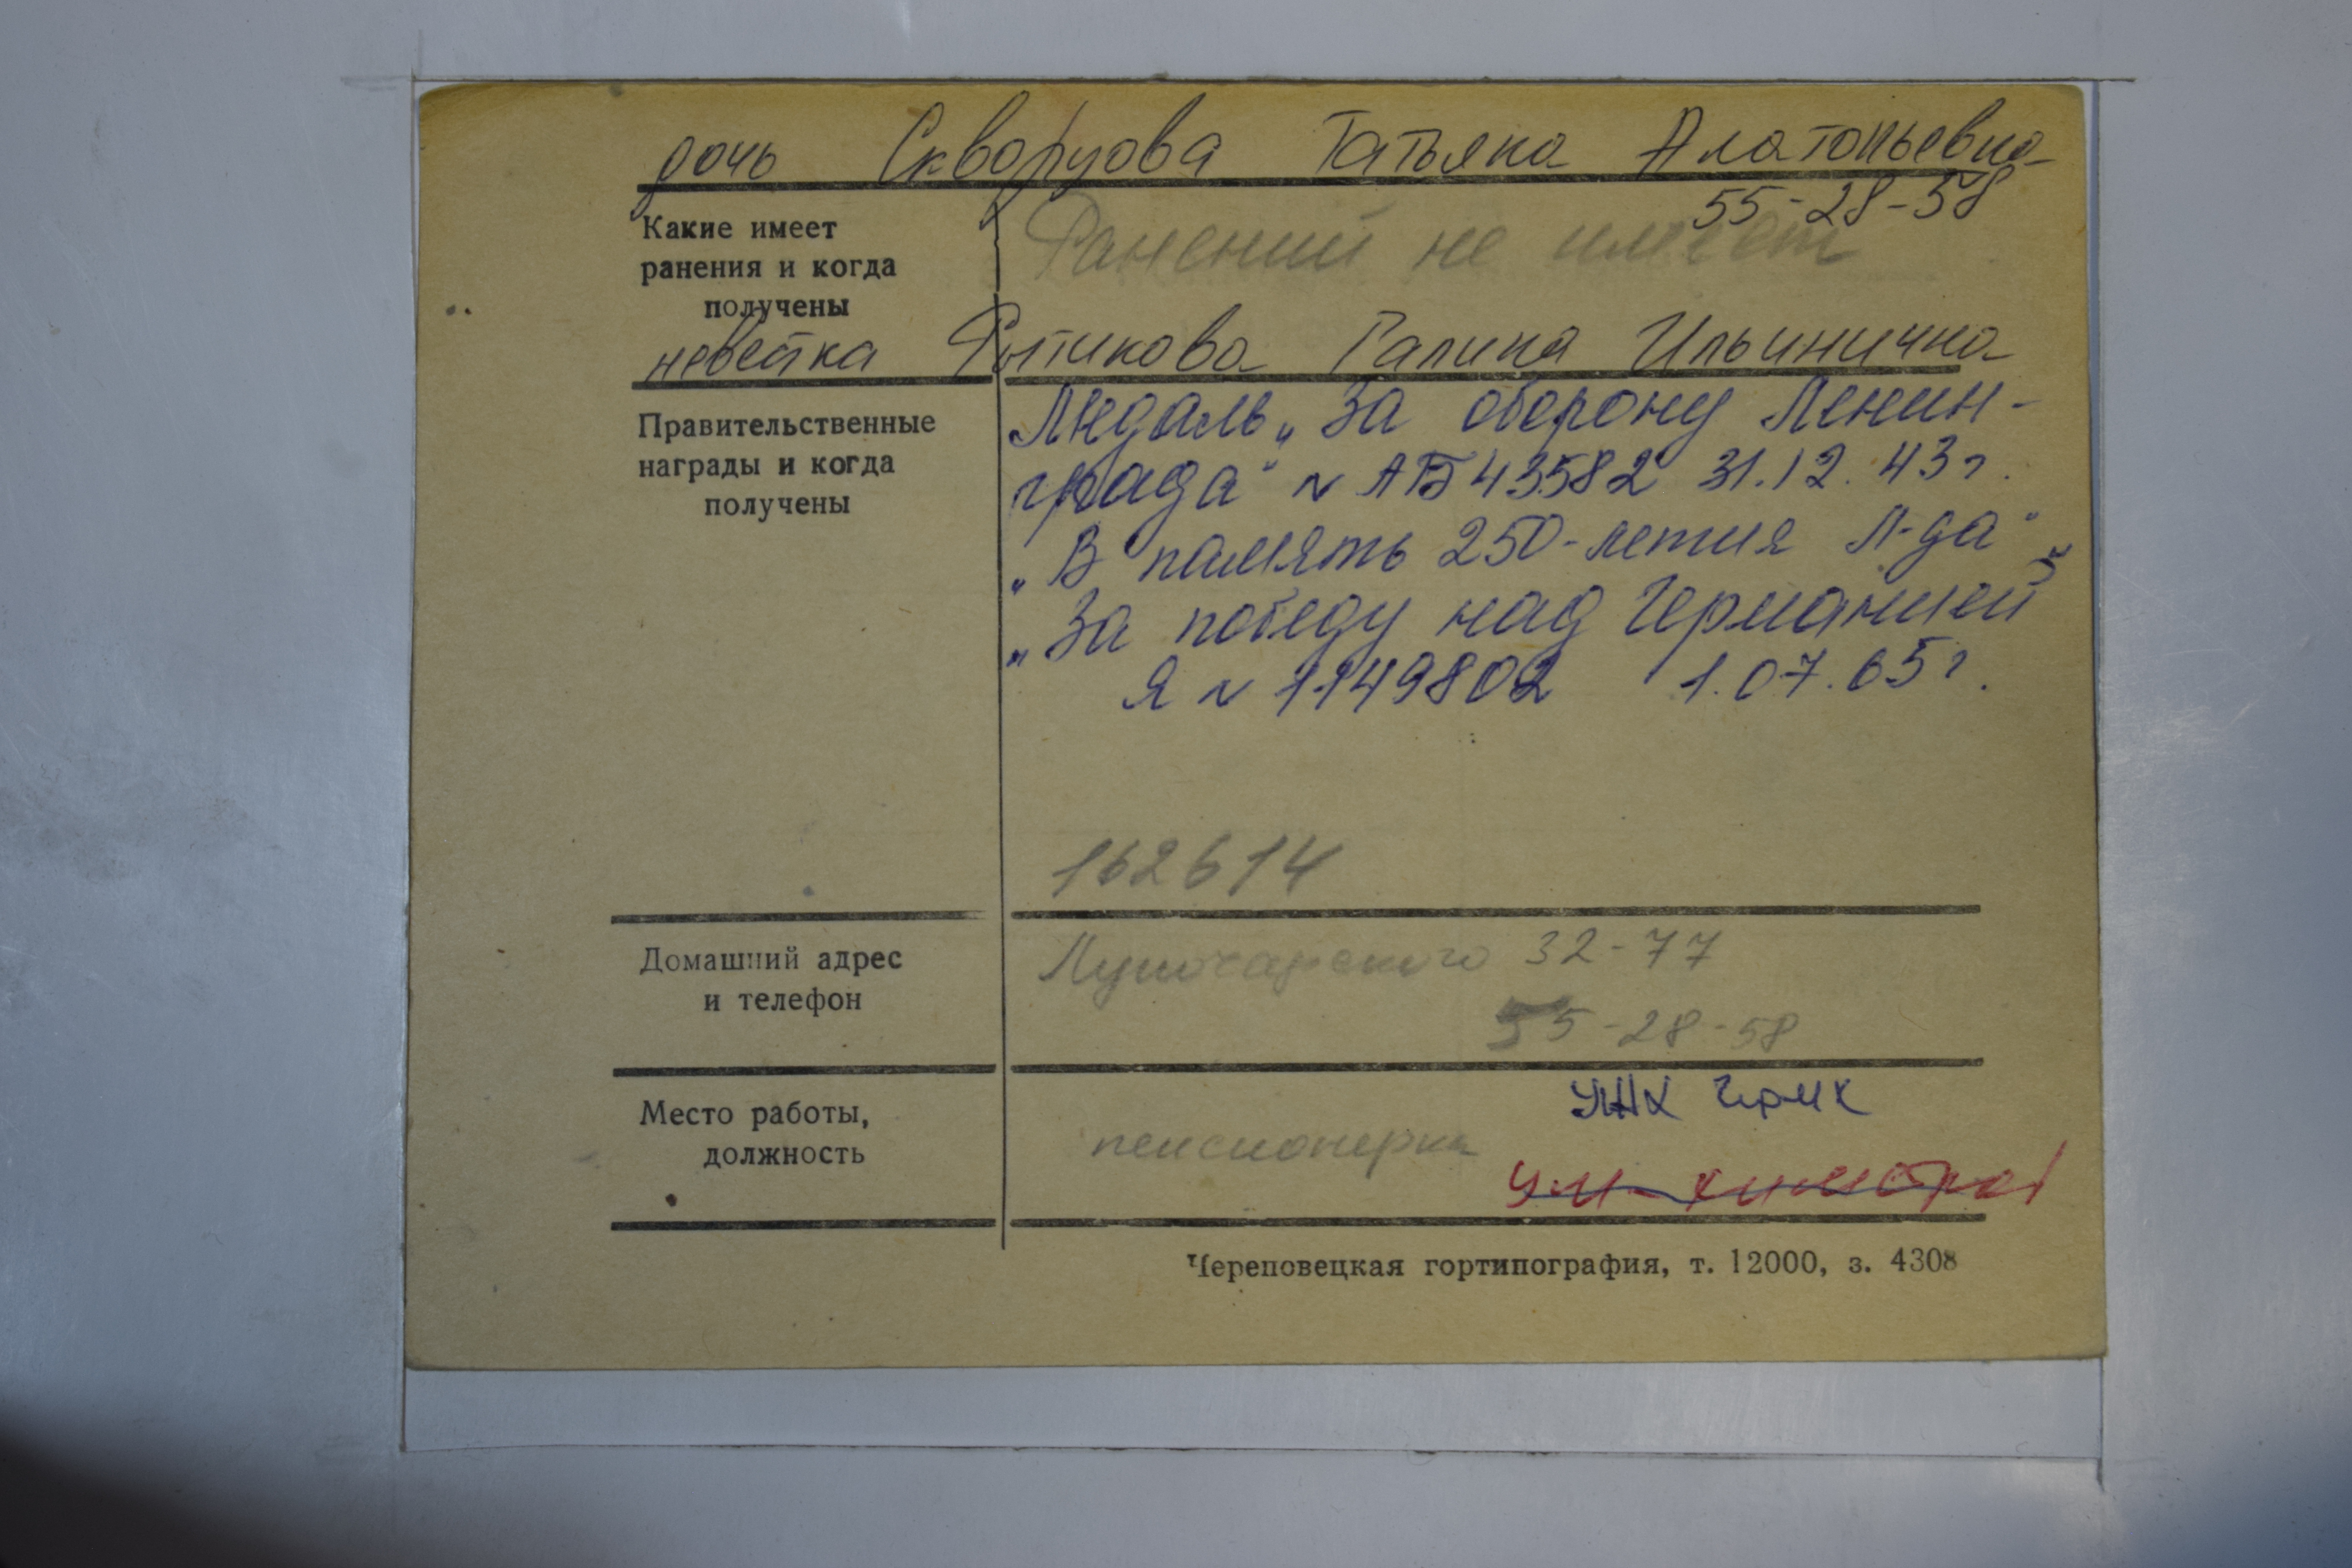 дочь Скворцова Татьяна Алатольевна
55-28-58
Какие имеет
ранения и когда
получены
Ранений не имеет
невестка Рытикова Галина Ильинична
Правительственные
награды и когда
получены
Медаль „За оборону Ленин-
града" № АБ 43582 31.12.43 г.
„В память 250-летия Л-да"
„За победу над Германией"
Я № 1149802 1.07.65 г.
162614
Домашний адрес
и телефон
Луначарского 32-77
55-28-58
Место работы,
должность
УЖХ ЧрМК
пенсионерка
Череповецкая гортипография, т. 12000, з. 4308